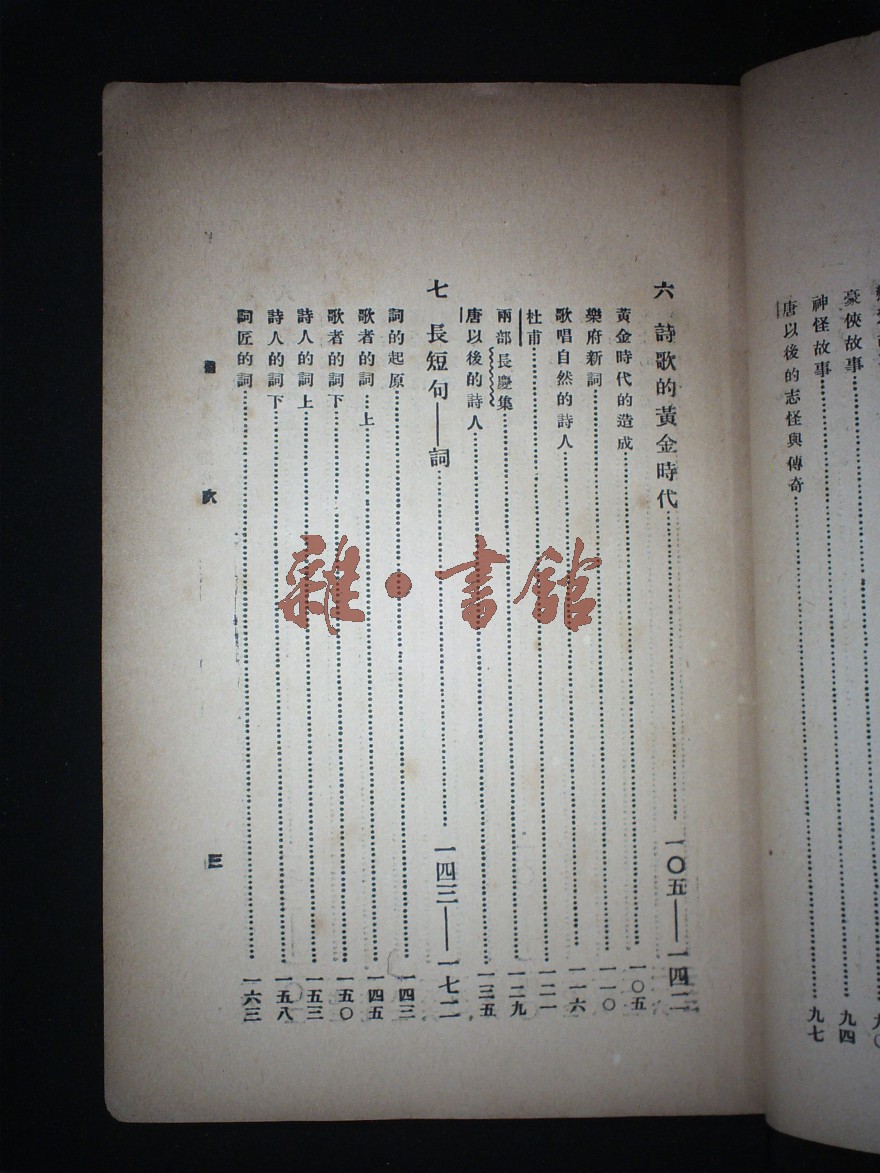 豪俠故事……九四
神怪故事……九七
唐以後的志怪與傳奇
六　詩歌的黃金時代……一〇五——一四二
黃金時代的造成……一〇五
樂府新詞……一一〇
歌唱自然的詩人……一一六
杜甫……一二一
兩部長慶集……一二九
唐以後的詩人……一三五
七　長短句——詞……一四三——一七二
詞的起原……一四三
歌者的詞　上……一四五
歌者的詞下……一五〇
詩人的詞上……一五三
詩人的詞下……一五八
詞匠的詞……一六三
目　次　三
雜·書館